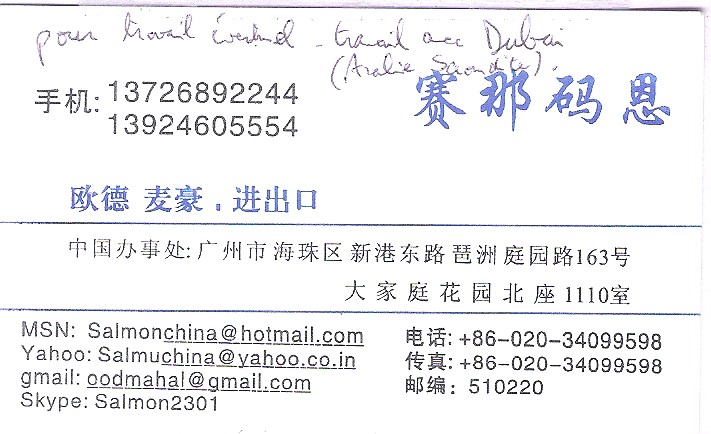 pour travail éventuel - travail avec Dubai
(Arabie Saoudite).
赛那码恩
手机: 13726892244
13924605554
欧德 麦豪 . 进出口
中国办事处: 广州市海珠区新港东路琶洲庭园路163号
大家庭花园北座1110室
MSN: Salmonchina@hotmail.com
Yahoo: Salmuchina@yahoo.co.in
gmail: oodmahal@gmail.com
Skype: Salmon2301
电话: +86-020-34099598
传真: +86-020-34099598
邮编: 510220